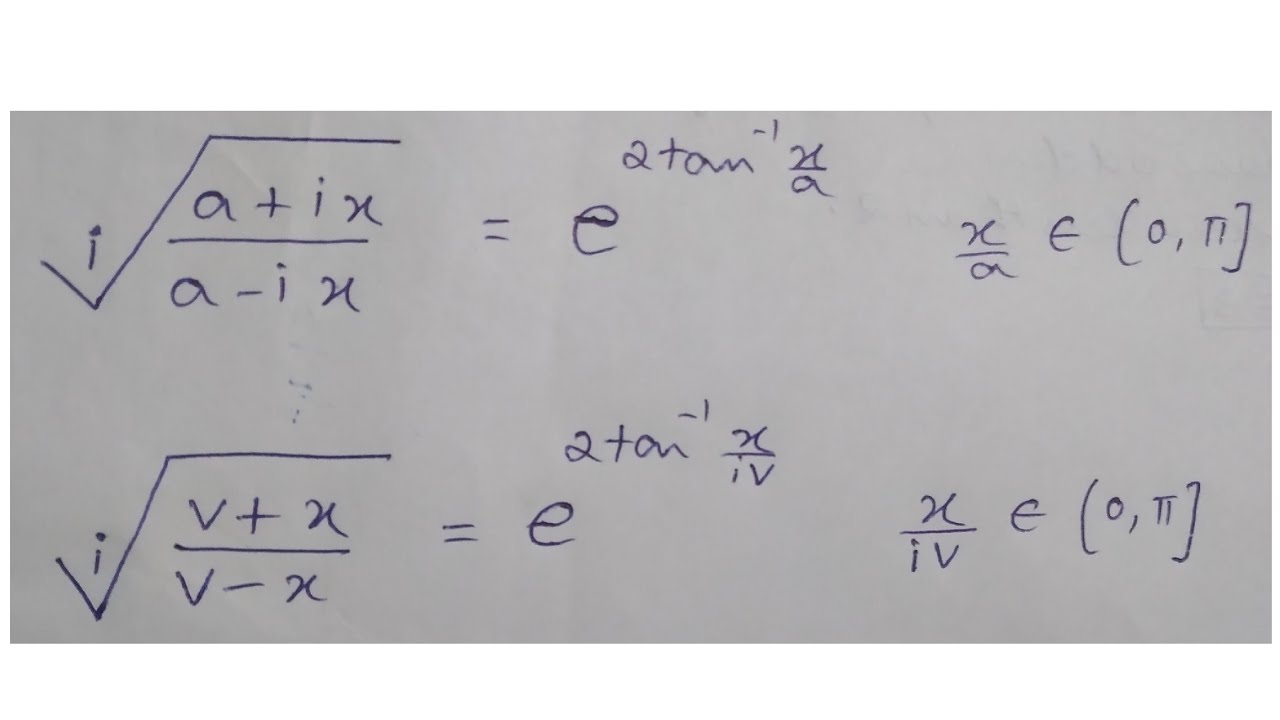 ⁱ√((a + ix)/(a - ix)) = e^(2tan⁻¹ x/a) x/a ∈ (0, π]
ⁱ√((v + x)/(v - x)) = e^(2tan⁻¹ x/iv) x/iv ∈ (0, π]